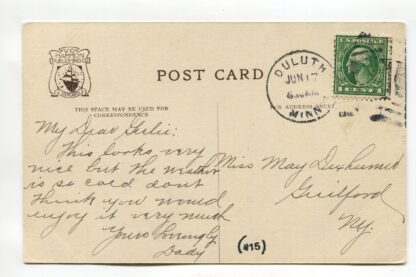 V.O.
HAMMON
PUBLISHING CO.
POST CARD
THIS SPACE MAY BE USED FOR
CORRESPONDENCE
FOR ADDRESS ONLY
DULUTH
JUN 17
MINN
U.S. POSTAGE
1 CENT 1
My Dear Girlie:
This looks very
nice but the weather
is so cold dont
think you would
enjoy it very much
Yours Lovingly
Dady
Miss May
Guilford
NY.
(415)